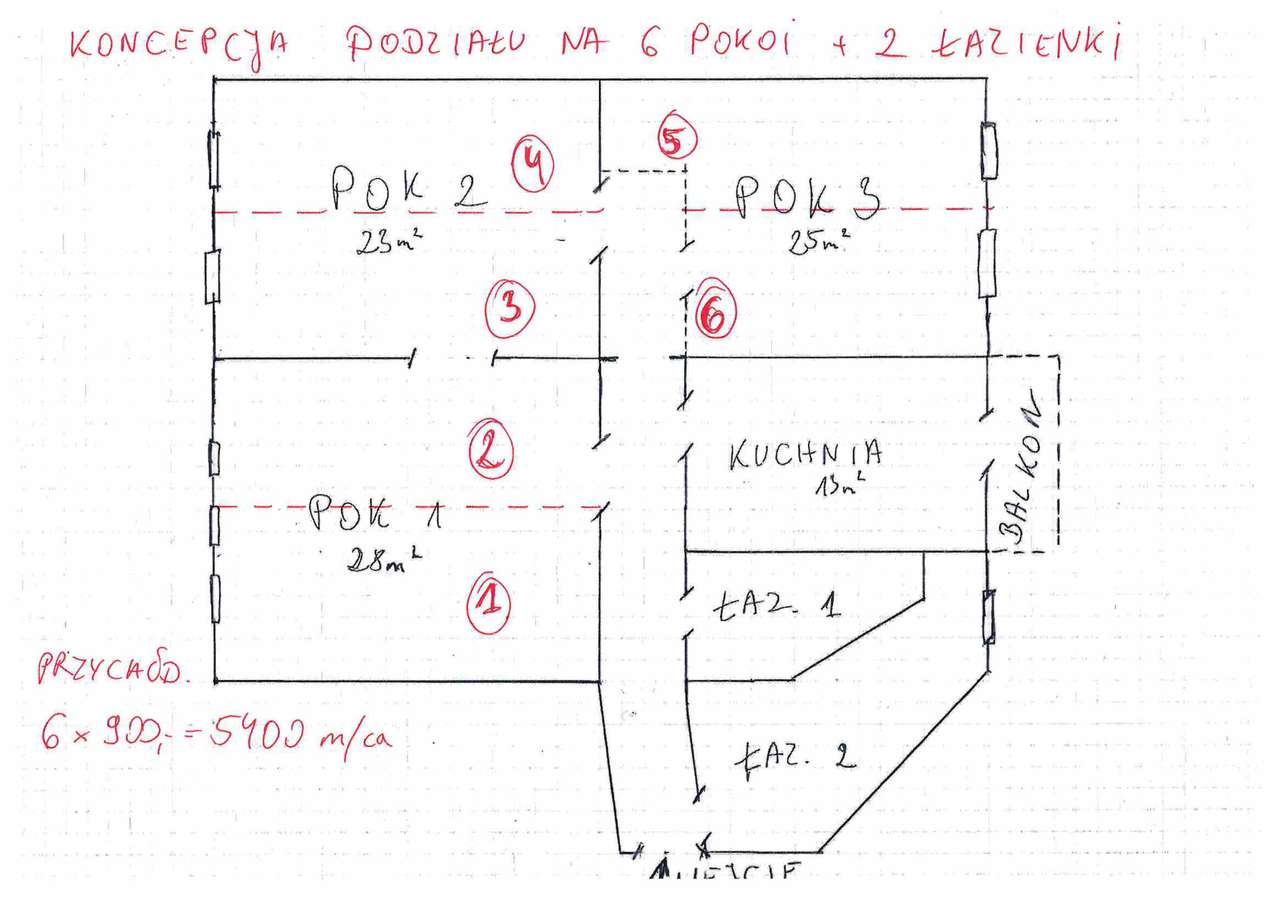 KONCEPCJA PODZIAŁU NA 6 POKOI + 2 ŁAZIENKI
5
4
POK 2
23m²
POK 3
25m²
3
6
2
KUCHNIA
13m²
BALKON
POK 1
28m²
1
ŁAZ. 1
PRZYCHÓD.
6 × 900,- = 5400 m/ca
ŁAZ. 2
WEJŚCIE